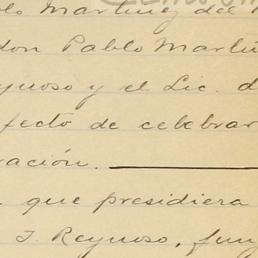 blo Martínez del
don Pablo Martín
ynoso y el Lic. d
fecto de celebrar
ración.
que presidiera
I. Reynoso, fun